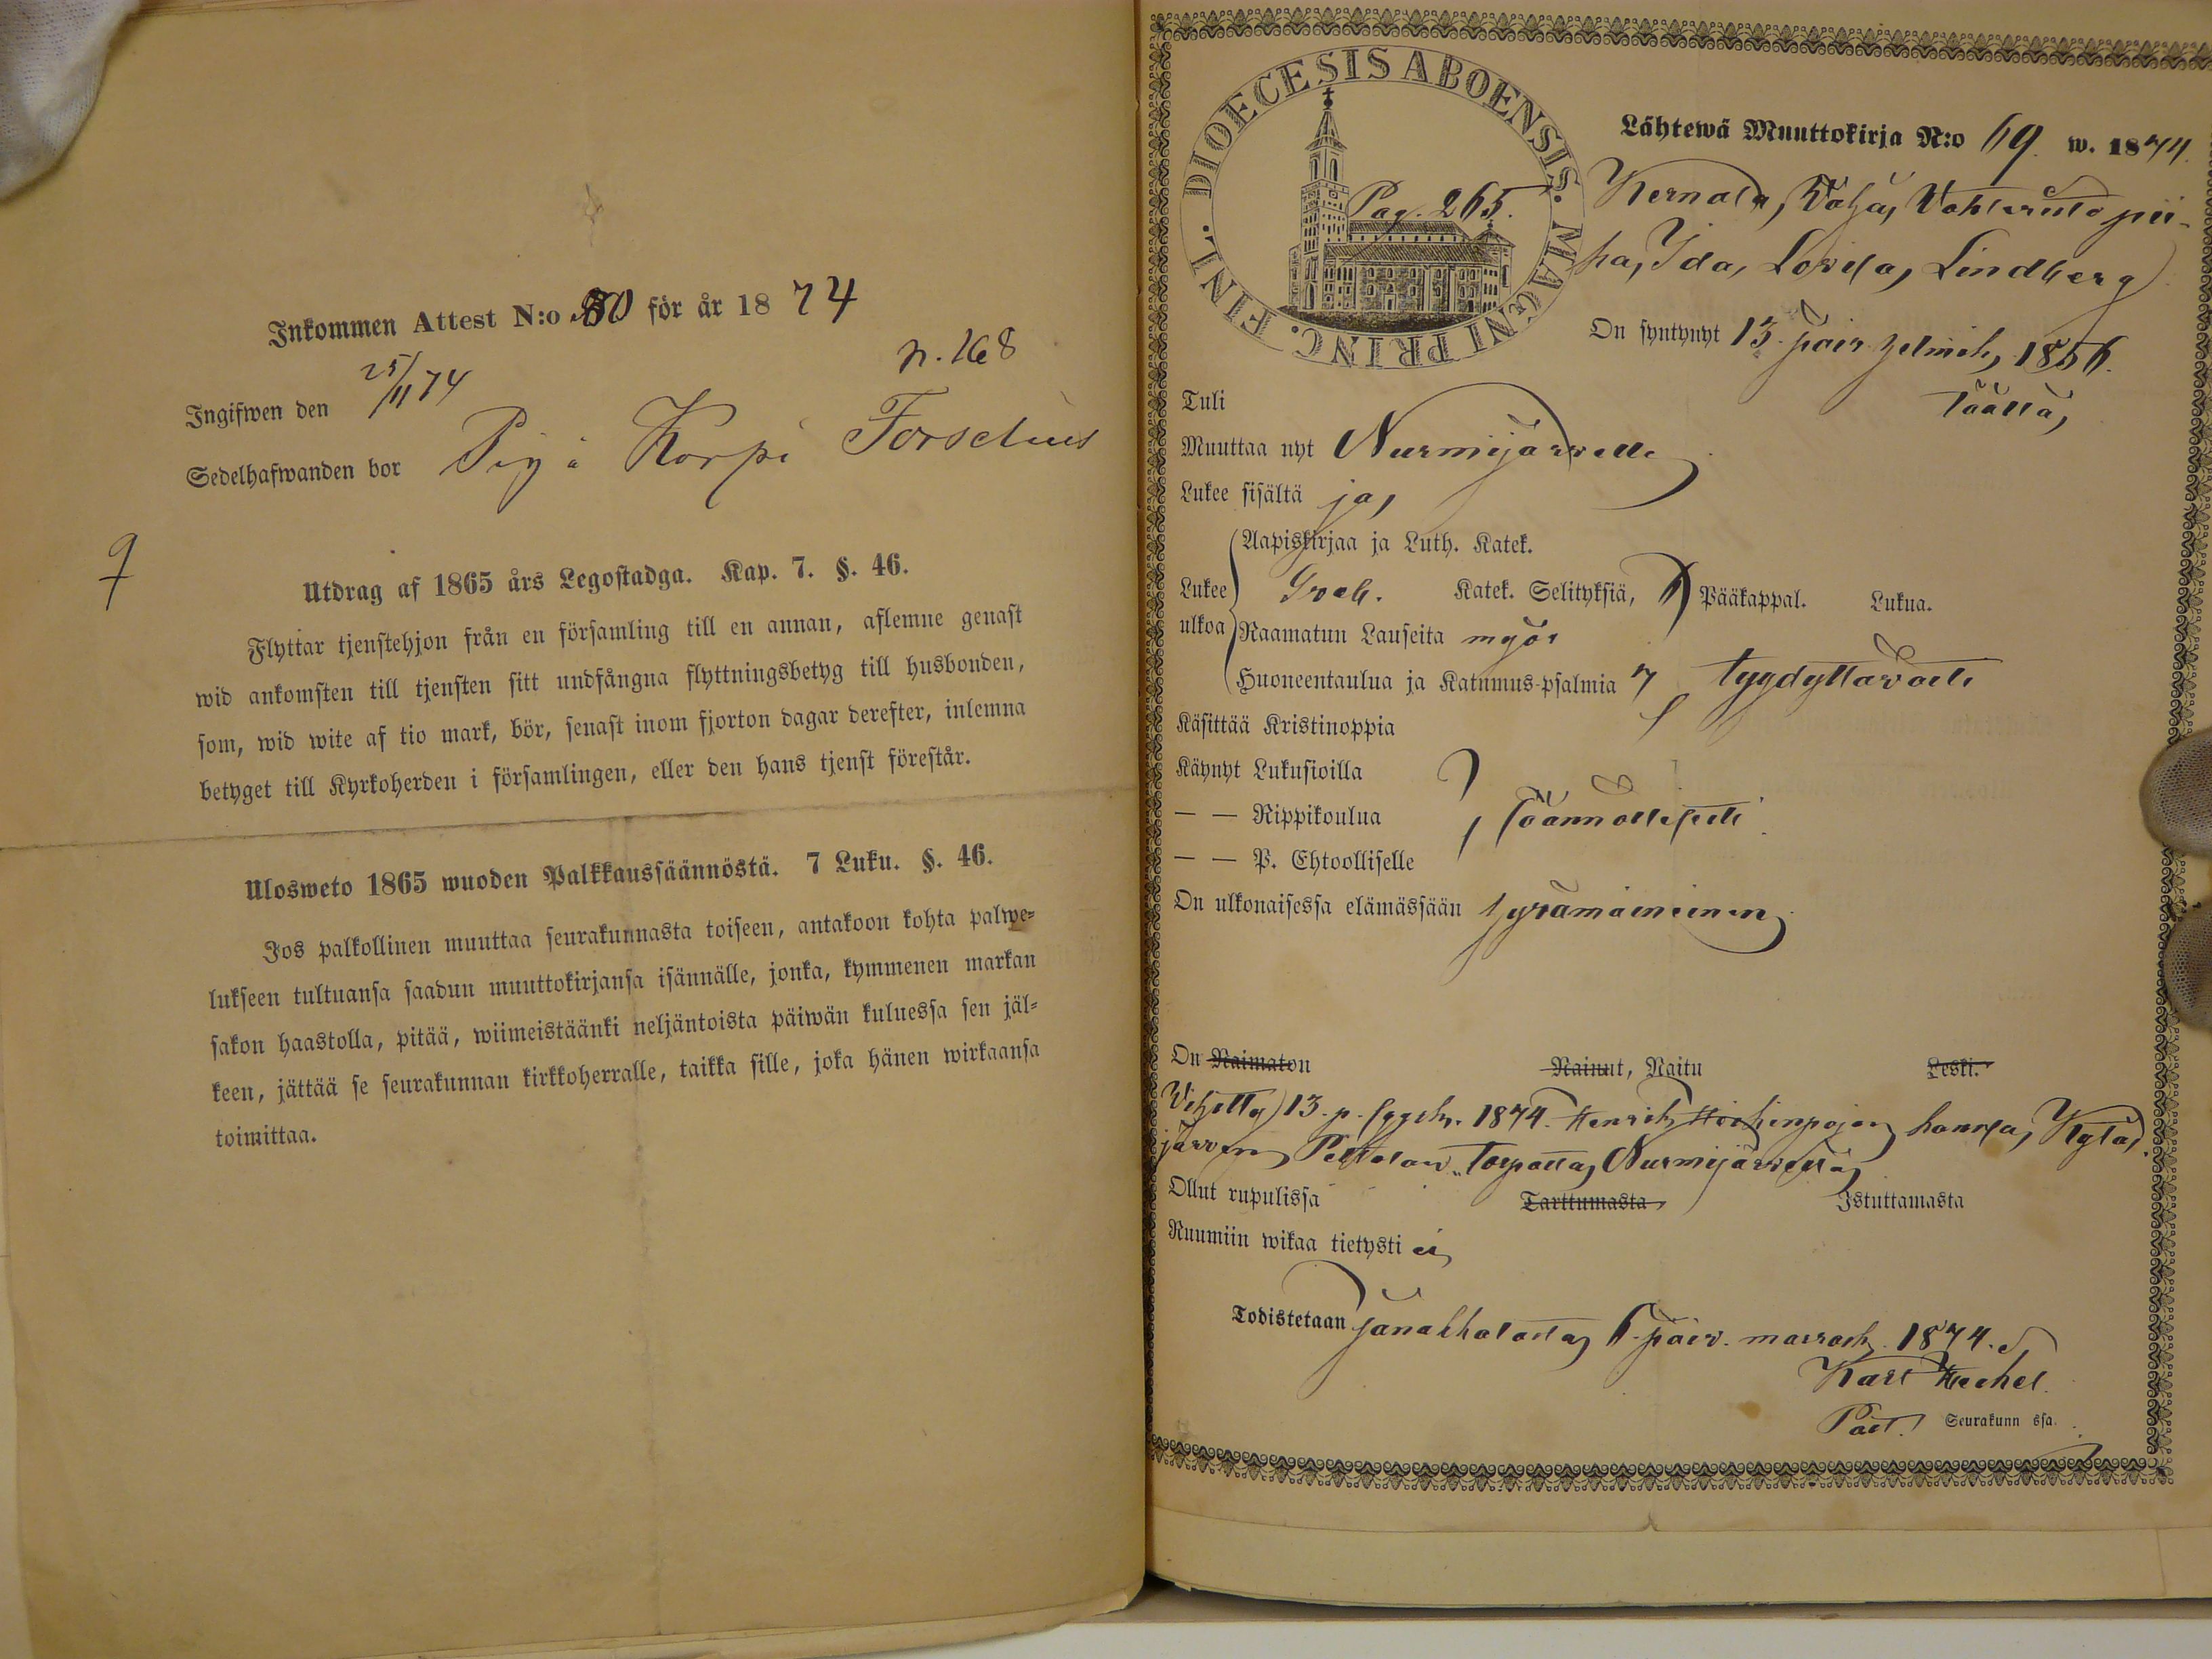 Inkommen Attest N:o 50 för år 1874
p. 168
Ingifwen den 25/11 74
Sedelhafwanden bor Pig å Korpi Forselius
Utdrag af 1865 års Legostadga. Kap. 7. §. 46.
Flyttar tjenstehjon från en församling till en annan, aflemne genast
wid ankomsten till tjensten sitt undfångna flyttningsbetyg till husbonden,
som, wid wite af tio mark, bör, senast inom fjorton dagar derefter, inlemna
betyget till Kyrkoherden i församlingen, eller den hans tjenst förestår.
Ulosweto 1865 wuoden Palkkaussäännöstä. 7 Luku. §. 46.
Jos palkollinen muuttaa seurakunnasta toiseen, antakoon kohta palwe-
lukseen tultuansa saadun muuttokirjansa isännälle, jonka, kymmenen markan
sakon haastolla, pitää, wiimeistäänki neljäntoista päiwän kuluessa sen jäl-
keen, jättää se seurakunnan kirkkoherralle, taikka sille, joka hänen wirkaansa
toimittaa.
DIOECESIS ABOENSIS. MAGNI PRINC. FINL.
Pag. 265.
Lähtewä Muuttokirja N:o 69. w. 1874.
Kernala, pii-
ka, Ida, Lovisa, Lindberg
On syntynyt 13. päiv. helmik. 1856.
Tuli täällä,
Muuttaa nyt Nurmijärvelle
Lukee sisältä ja,
Aapiskirjaa ja Luth. Katek.
Lukee ulkoa Katek. Selityksiä, Pääkappal. Lukua.
Raamatun Lauseita myös
Huoneentaulua ja Katumus-psalmia tyydyttävästi
Käsittää Kristinoppia
Käynyt Lukusioilla
— — Rippikoulua säännöllisesti
— — P. Ehtoolliselle
On ulkonaisessa elämässään hyvämaineinen
On Naimaton Nainut, Naitu Leski.
Vihitty 13. p. syysk. 1874. Henrik Heikinpojan kanssa, Kytä-
järven Peltolan Torpassa, Nurmijärvellä
Ollut rupulissa Tarttumasta Istuttamasta
Ruumiin wikaa tietysti ei,
Todistetaan Janakkalassa, 6. päiv. marrask. 1874.
Karl Hechel.
Past. Seurakunn ssa.